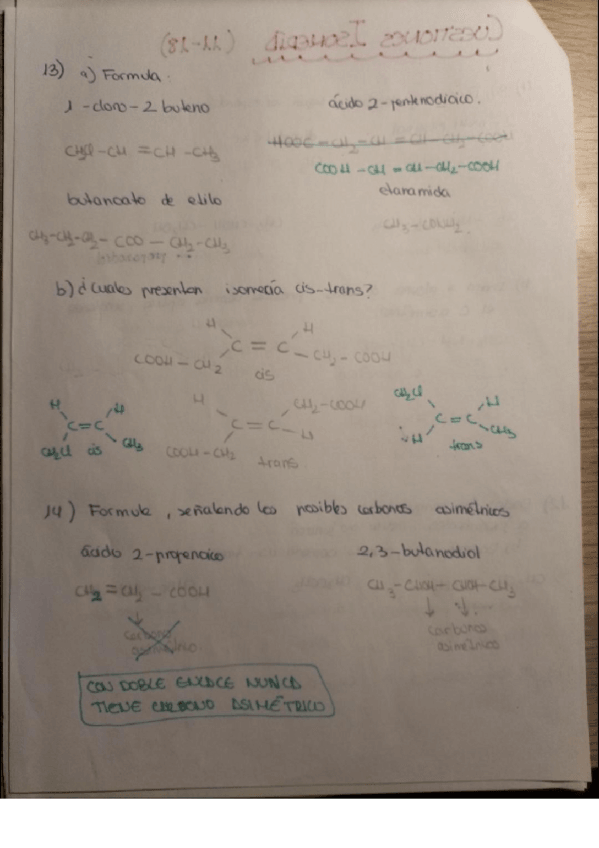 CUESTIONES ISOMERÍA (11-18)
13) a) Formula:
1-cloro-2 buteno
ácido 2-pentenodioico.
CH2Cl-CH=CH-CH3
HOOC-CH2-CH=CH-CH2-COOH
COOH-CH=CH-CH2-COOH
butanoato de etilo
etanamida
CH3-CH2-CH2-COO-CH2-CH3
CH3-CONH2
b) ¿cuales presentan isomería cis-trans?
H
H
C=C
COOH-CH2
CH2-COOH
cis
H
H
C=C
CH2Cl
cis
CH3
H
CH2-COOH
C=C
COOH-CH2
H
trans
CH2Cl
H
C=C
H
CH3
trans
14) Formula, señalando los posibles carbonos asimétricos
ácido 2-propenoico
2,3-butanodiol
CH2=CH2-COOH
CH3-CHOH-CHOH-CH3
carbono
asimétrico
carbonos
asimétricos
CON DOBLE ENLACE NUNCA
TIENE CARBONO ASIMÉTRICO